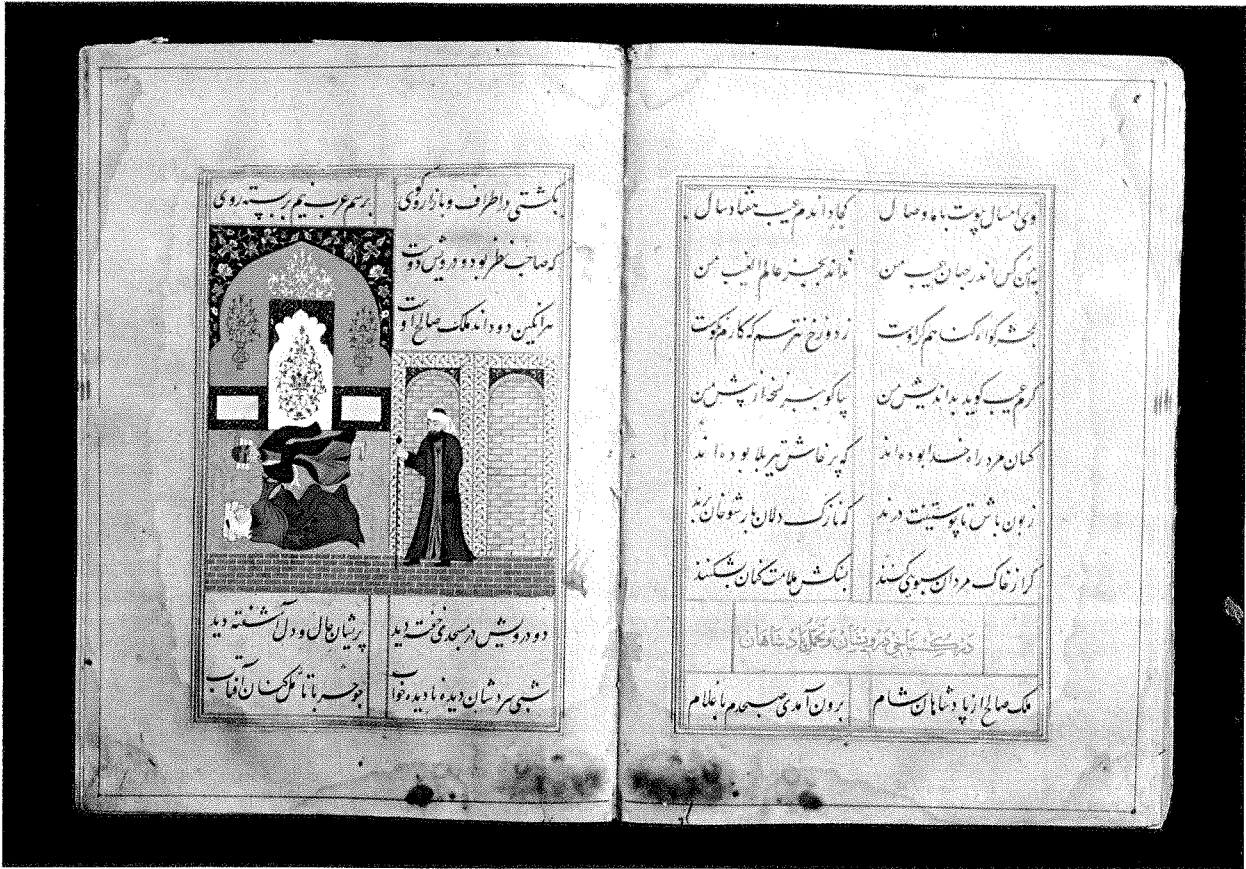 وی امسال پیوست با ما وصال کجا داندم عیب هفتاد سال
کس اندر جهان عیب من نداند بجز عالم الغیب من
بمحشر کواه کناهم کر اوست ز دوزخ نترسم که کارم نکوست
کرم عیب کوید بداندیش من بیا کو ببر نسخه از پیش من
کسان مرد راه خدا بوده‌اند که پرخاش تیر بلا بوده‌اند
زبون باش تا پوستینت درند که نازک دلان بار شوخان برند
کر از خاک مردان سبویی کنند بسنکش ملامت کنان بشکنند
در کستاخی درویشان و تحمل پادشاهان
ملک صالح از پادشاهان شام برون آمدی صبحدم با غلام
بکشتی در اطراف و بازار و کوی برسم عرب نیم بربسته روی
که صاحب نظر بود و درویش دوست
هرانکین دو داند ملک صالح اوست
دو درویش در مسجدی خفته دید پریشان حال و دل آشفته دید
شبی سردشان دیده نادیده خواب چو حربا تأمل کنان آفتاب